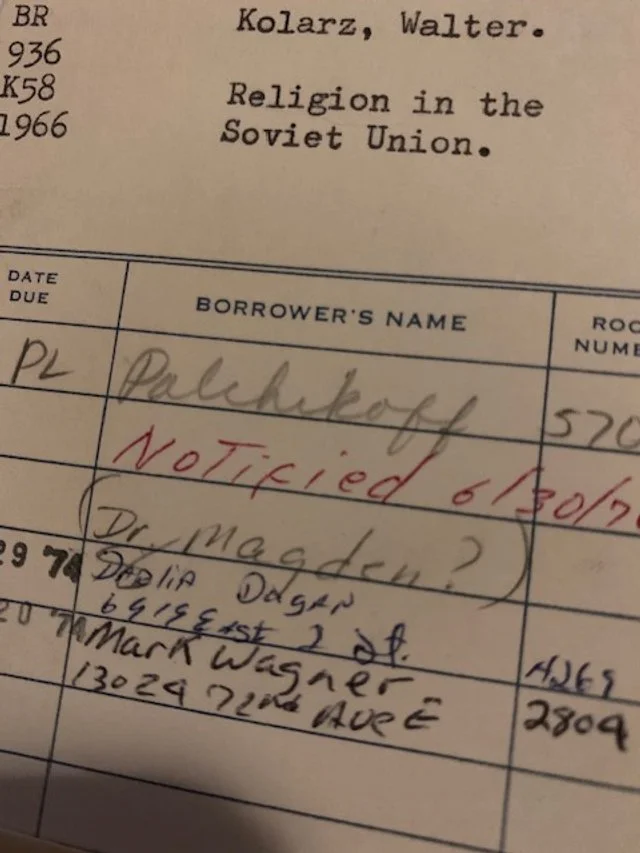 BR
936
K58
1966
Kolarz, Walter.
Religion in the
Soviet Union.
DATE DUE
BORROWER'S NAME
ROO
NUMB
PL Palchikoff 570
Notified 6/30/7
(Dr. Magden?)
29 74 Dalia Dagan
6919 East 2 St. 4269
20 74 Mark Wagner
13029 72nd Ave E 2809